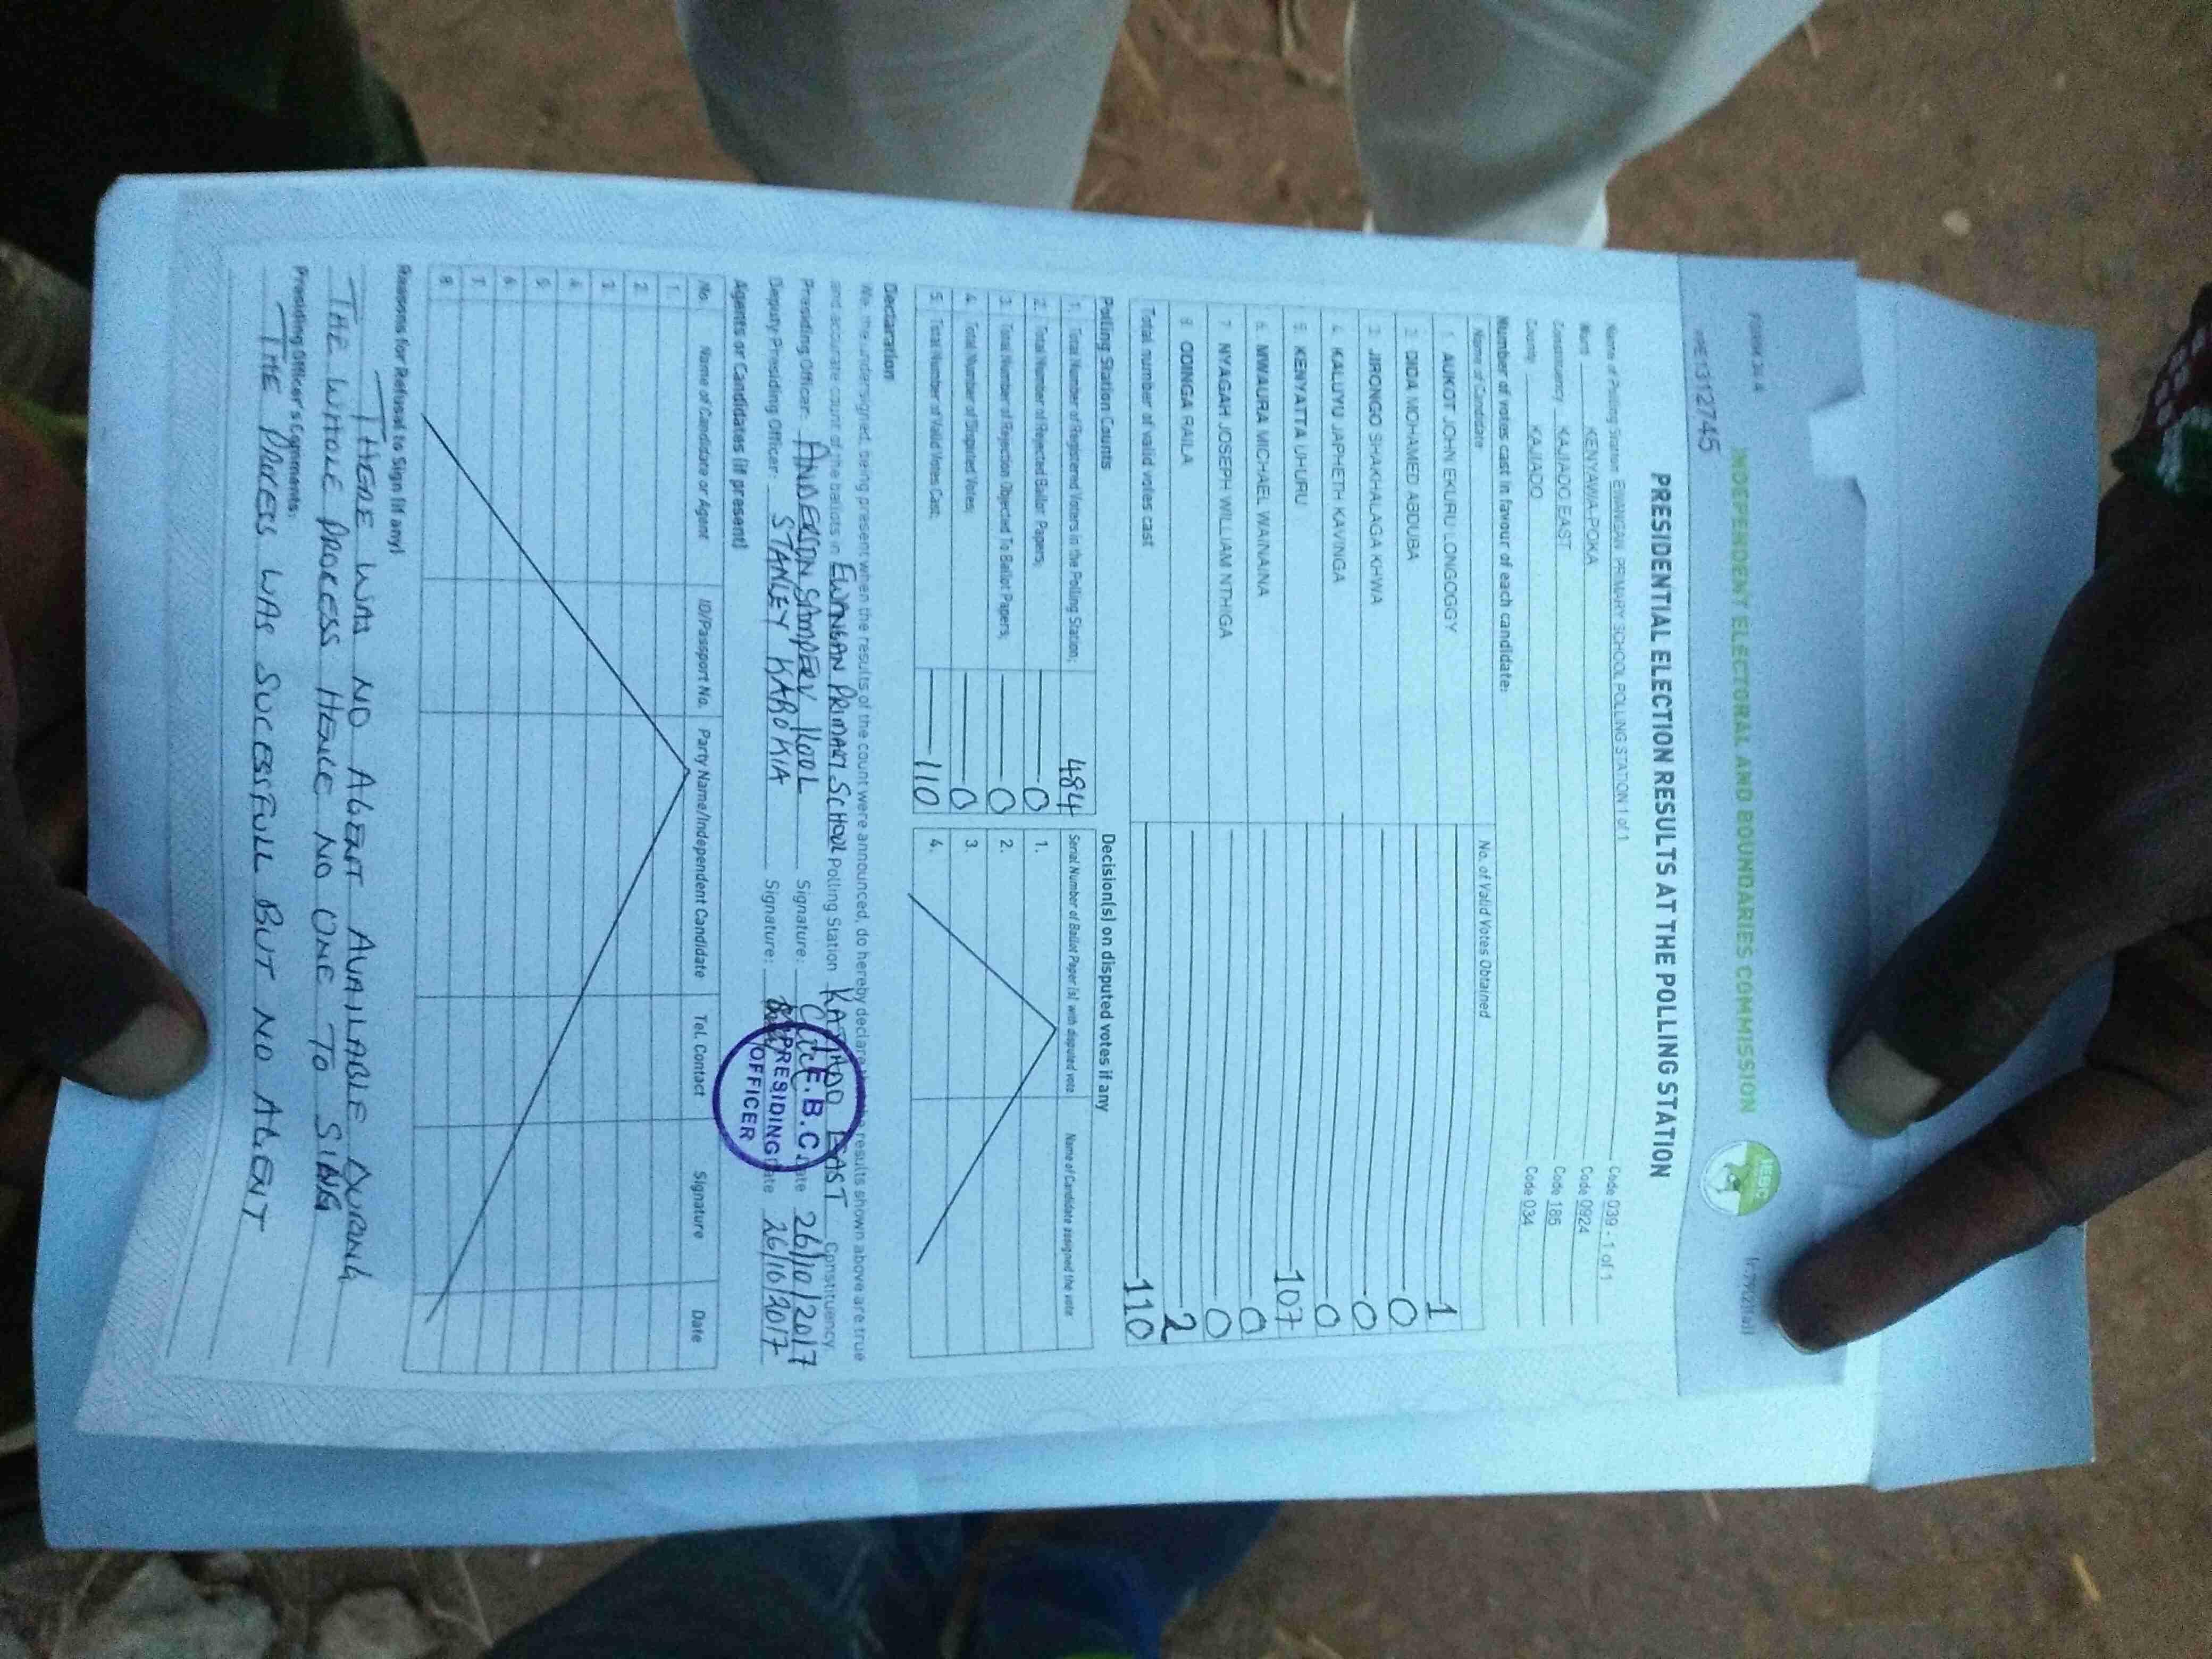 FORM 34 A
INDEPENDENT ELECTORAL AND BOUNDARIES COMMISSION
IEBC
PRESIDENTIAL ELECTION RESULTS AT THE POLLING STATION
Name of Polling Station EWANGAN PRIMARY SCHOOL POLLING STATION 1 of 1 Code 039 - 1 of 1
Ward KENYAWA-POKA Code 0924
Constituency KAJIADO EAST Code 185
County KAJIADO Code 034
Number of votes cast in favour of each candidate:
Name of Candidate No. of Valid Votes Obtained
1. AUKOT JOHN EKURU LONGOGGY 1
2. DIDA MOHAMED ABDUBA 0
3. JIRONGO SHAKHALAGA KHWA 0
4. KALUYU JAPHETH KAVINGA 0
5. KENYATTA UHURU 107
6. MWAURA MICHAEL WAINAINA 0
7. NYAGAH JOSEPH WILLIAM NTHIGA 0
8. ODINGA RAILA 2
Total number of valid votes cast 110
Polling Station Counts
1. Total Number of Registered Voters in the Polling Station; 484
2. Total Number of Rejected Ballot Papers; 0
3. Total Number of Rejection Objected To Ballot Papers; 0
4. Total Number of Disputed Votes; 0
5. Total Number of Valid Votes Cast; 110
Decision(s) on disputed votes if any
Serial Number of Ballot Paper (s) with disputed vote Name of Candidate assigned the vote
1.
2.
3.
4.
Declaration
We, the undersigned, being present when the results of the count were announced, do hereby declare that the results shown above are true
and accurate count of the ballots in EWANGAN PRIMARY SCHOOL Polling Station KAJIADO EAST Constituency
Presiding Officer: ANDERSON KOOL Signature: Date 26/10/2017
Deputy Presiding Officer: STANLEY Signature: Date 26/10/2017
I.E.B.C.
PRESIDING
OFFICER
Agents or Candidates (if present)
No. Name of Candidate or Agent ID/Passport No. Party Name/Independent Candidate Tel. Contact Signature Date
1.
2.
3.
4.
5.
6.
7.
8.
Reasons for Refusal to Sign (if any)
THERE WAS NO AGENT AVAILABLE DURING
THE WHOLE PROCESS HENCE NO ONE TO SING
Presiding Officer's Comments:
THE PROCESS WAS SUCESSFULL BUT NO AGENT